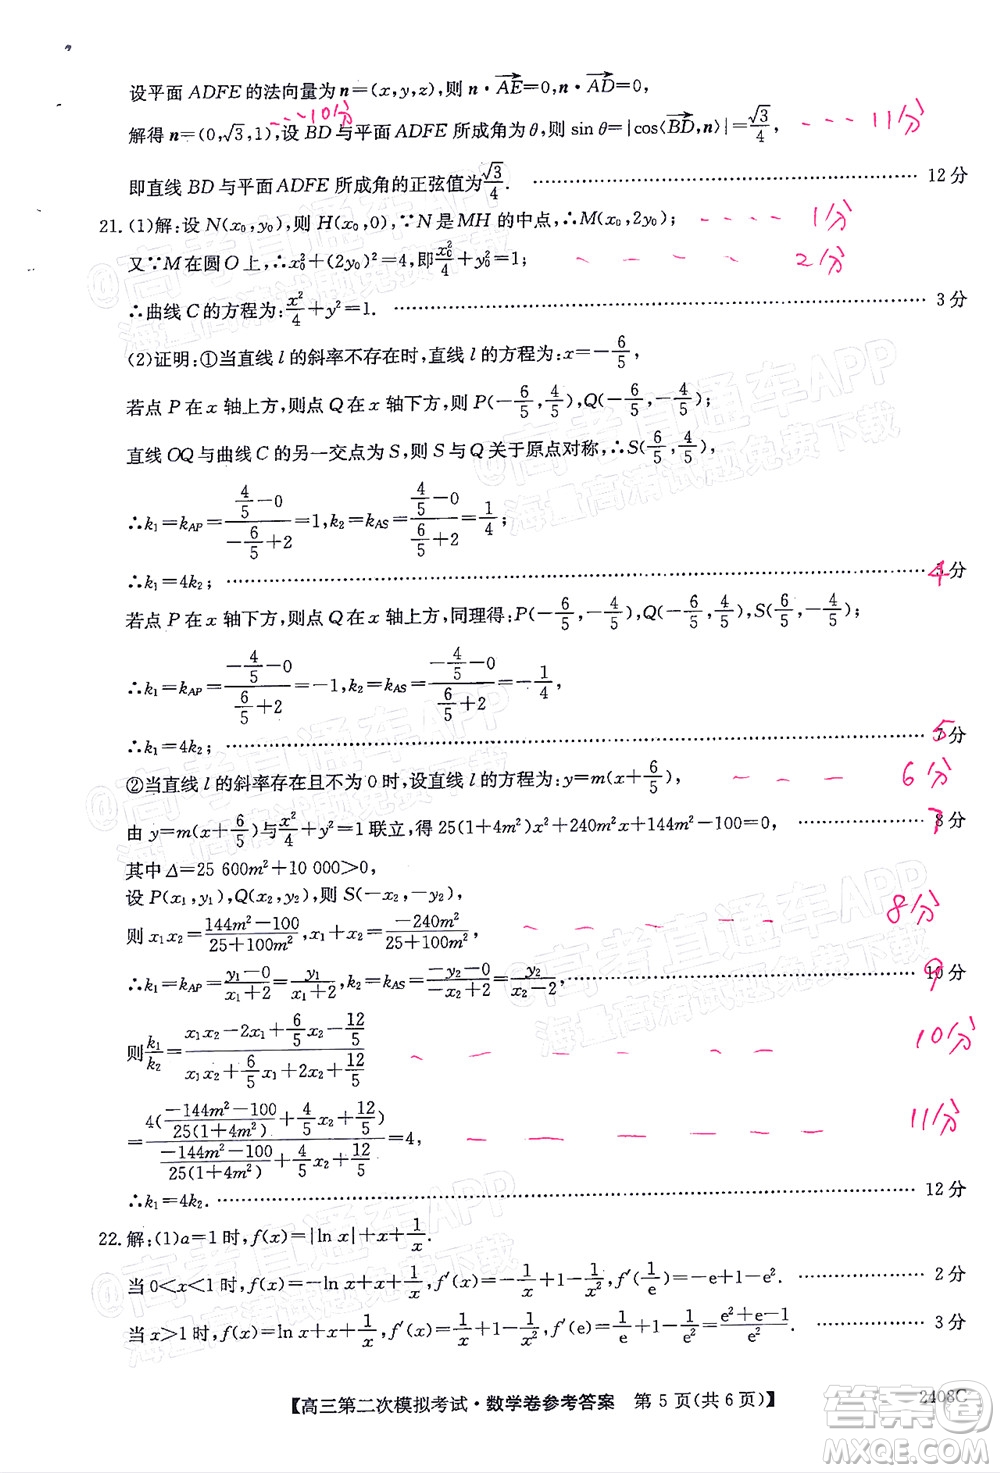 设平面 ADFE 的法向量为 n=(x,y,z),则 n·AE=0,n·AD=0,
---10分
解得 n=(0,√3,1),设 BD 与平面 ADFE 所成角为 θ,则 sin θ=|cos⟨BD,n⟩|=√3/4, ---11分
即直线 BD 与平面 ADFE 所成角的正弦值为√3/4. ……………… 12 分
21. (1)解:设 N(x₀,y₀),则 H(x₀,0),∵N 是 MH 的中点,∴M(x₀,2y₀); ---- 1分
又∵M 在圆 O 上,∴x₀²+(2y₀)²=4,即x₀²/4+y₀²=1; ---- 2分
∴曲线 C 的方程为:x²/4+y²=1. ……………… 3 分
(2)证明:①当直线 l 的斜率不存在时,直线 l 的方程为:x=-6/5,
若点 P 在 x 轴上方,则点 Q 在 x 轴下方,则 P(-6/5,4/5),Q(-6/5,-4/5);
直线 OQ 与曲线 C 的另一交点为 S,则 S 与 Q 关于原点对称,∴S(6/5,4/5),
∴k₁=k_AP=(4/5-0)/(-6/5+2)=1,k₂=k_AS=(4/5-0)/(6/5+2)=1/4;
∴k₁=4k₂; ……………… 4分
若点 P 在 x 轴下方,则点 Q 在 x 轴上方,同理得:P(-6/5,-4/5),Q(-6/5,4/5),S(6/5,-4/5);
∴k₁=k_AP=(-4/5-0)/(6/5+2)=-1,k₂=k_AS=(-4/5-0)/(6/5+2)=-1/4,
∴k₁=4k₂; ……………… 5分
②当直线 l 的斜率存在且不为 0 时,设直线 l 的方程为:y=m(x+6/5), --- 6分
由 y=m(x+6/5)与x²/4+y²=1 联立,得 25(1+4m²)x²+240m²x+144m²-100=0, …… 7 8 分
其中 Δ=25 600m²+10 000>0,
设 P(x₁,y₁),Q(x₂,y₂),则 S(-x₂,-y₂),
则 x₁x₂=(144m²-100)/(25+100m²),x₁+x₂=(-240m²)/(25+100m²), ---- 8分
∴k₁=k_AP=(y₁-0)/(x₁+2)=y₁/(x₁+2),k₂=k_AS=(-y₂)/(-x₂+2)=y₂/(x₂-2), ……………… 9 10 分
则k₁/k₂=(x₁x₂-2x₁+6/5x₂-12/5)/(x₁x₂+6/5x₁+2x₂+12/5) ---- 10分
=4((-144m²-100)/(25(1+4m²))+4/5x₂+12/5)/((-144m²-100)/(25(1+4m²))+4/5x₂+12/5)=4, ---- 11分
∴k₁=4k₂. ……………… 12 分
22. 解:(1)a=1 时,f(x)=|ln x|+1/x.
当 0<x<1 时,f(x)=-ln x+1/x,f′(x)=-1/x-1/x²,f′(1/e)=-e+1-e². ……………… 2 分
当 x>1 时,f(x)=ln x+1/x,f′(x)=1/x-1/x²,f′(1/e)=1/e+1-1/e²=(e²+e-1)/e². ……………… 3 分
【高三第二次模拟考试·数学卷参考答案 第 5 页(共 6 页)】
2408C
@高考直通车APP
海量高清试题免费下载
答案圈
MXQE.COM